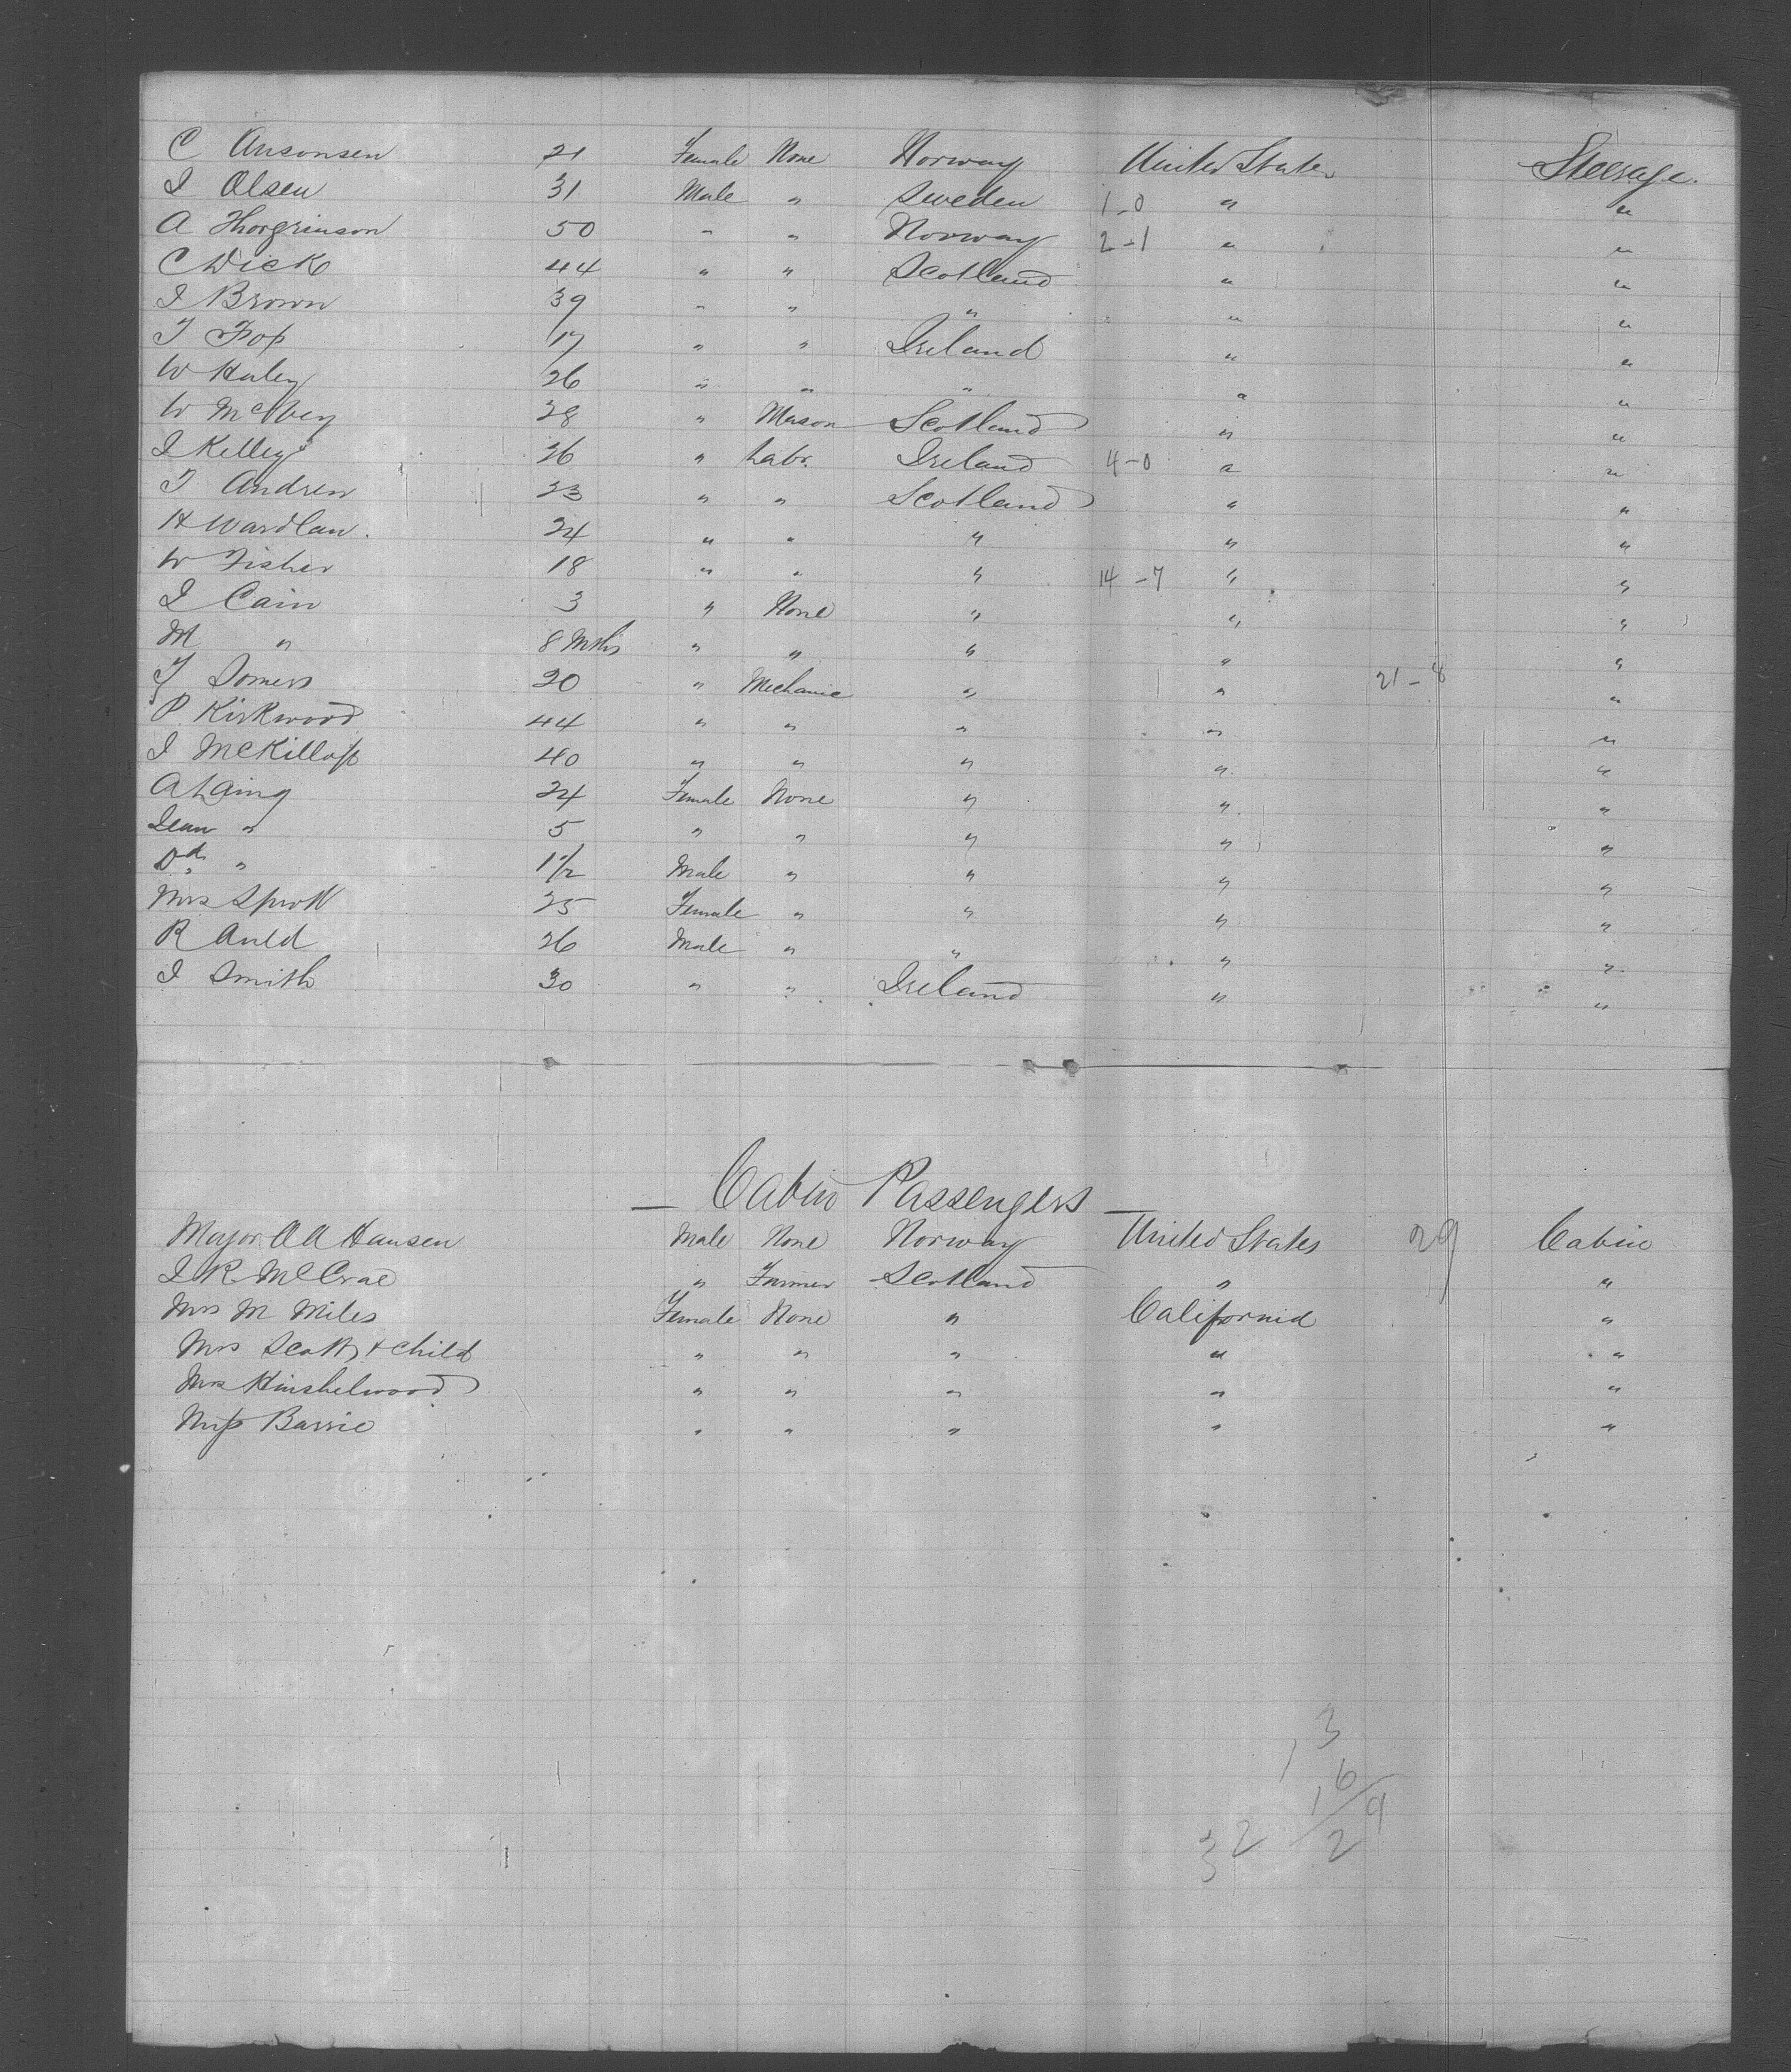 C Ansonsen 21 Female None Norway United States Steerage.
I Olsen 31 Male " Sweden 1-0 " "
A Thorgrinson 50 " " Norway 2-1 " "
C Dick 44 " " Scotland " "
I Brown 39 " " " " "
T Fox 17 " " Ireland " "
W Haley 26 " " " " "
W McVey 28 " Mason Scotland " "
I Kelley 26 " Labr. Ireland 4-0 " "
T Andrew 23 " " Scotland " "
H Wardlaw. 24 " " " " "
W Fisher 18 " " " 14-7 " "
I Cain 3 " None " " "
M " 8 Mths " " " " "
T Somers 20 " Mechanic " " 21-8 "
P Kirkwood 44 " " " " "
I McKillop 40 " " " " "
A Laing 24 Female None " " "
Jean " 5 " " " " "
Dd " 1 1/2 Male " " " "
Mrs Sprott 25 Female " " " "
R Auld 26 Male " " " "
I Smith 30 " " Ireland " "
— Cabin Passengers —
Major A A Hansen Male None Norway United States 29 Cabin
I R McCrae " Farmer Scotland " "
Mrs M Miles Female None " California "
Mrs Scott & child " " " " "
Mrs Hinshelwood " " " " "
Miss Barrie " " " " "
13
16
19
32 2